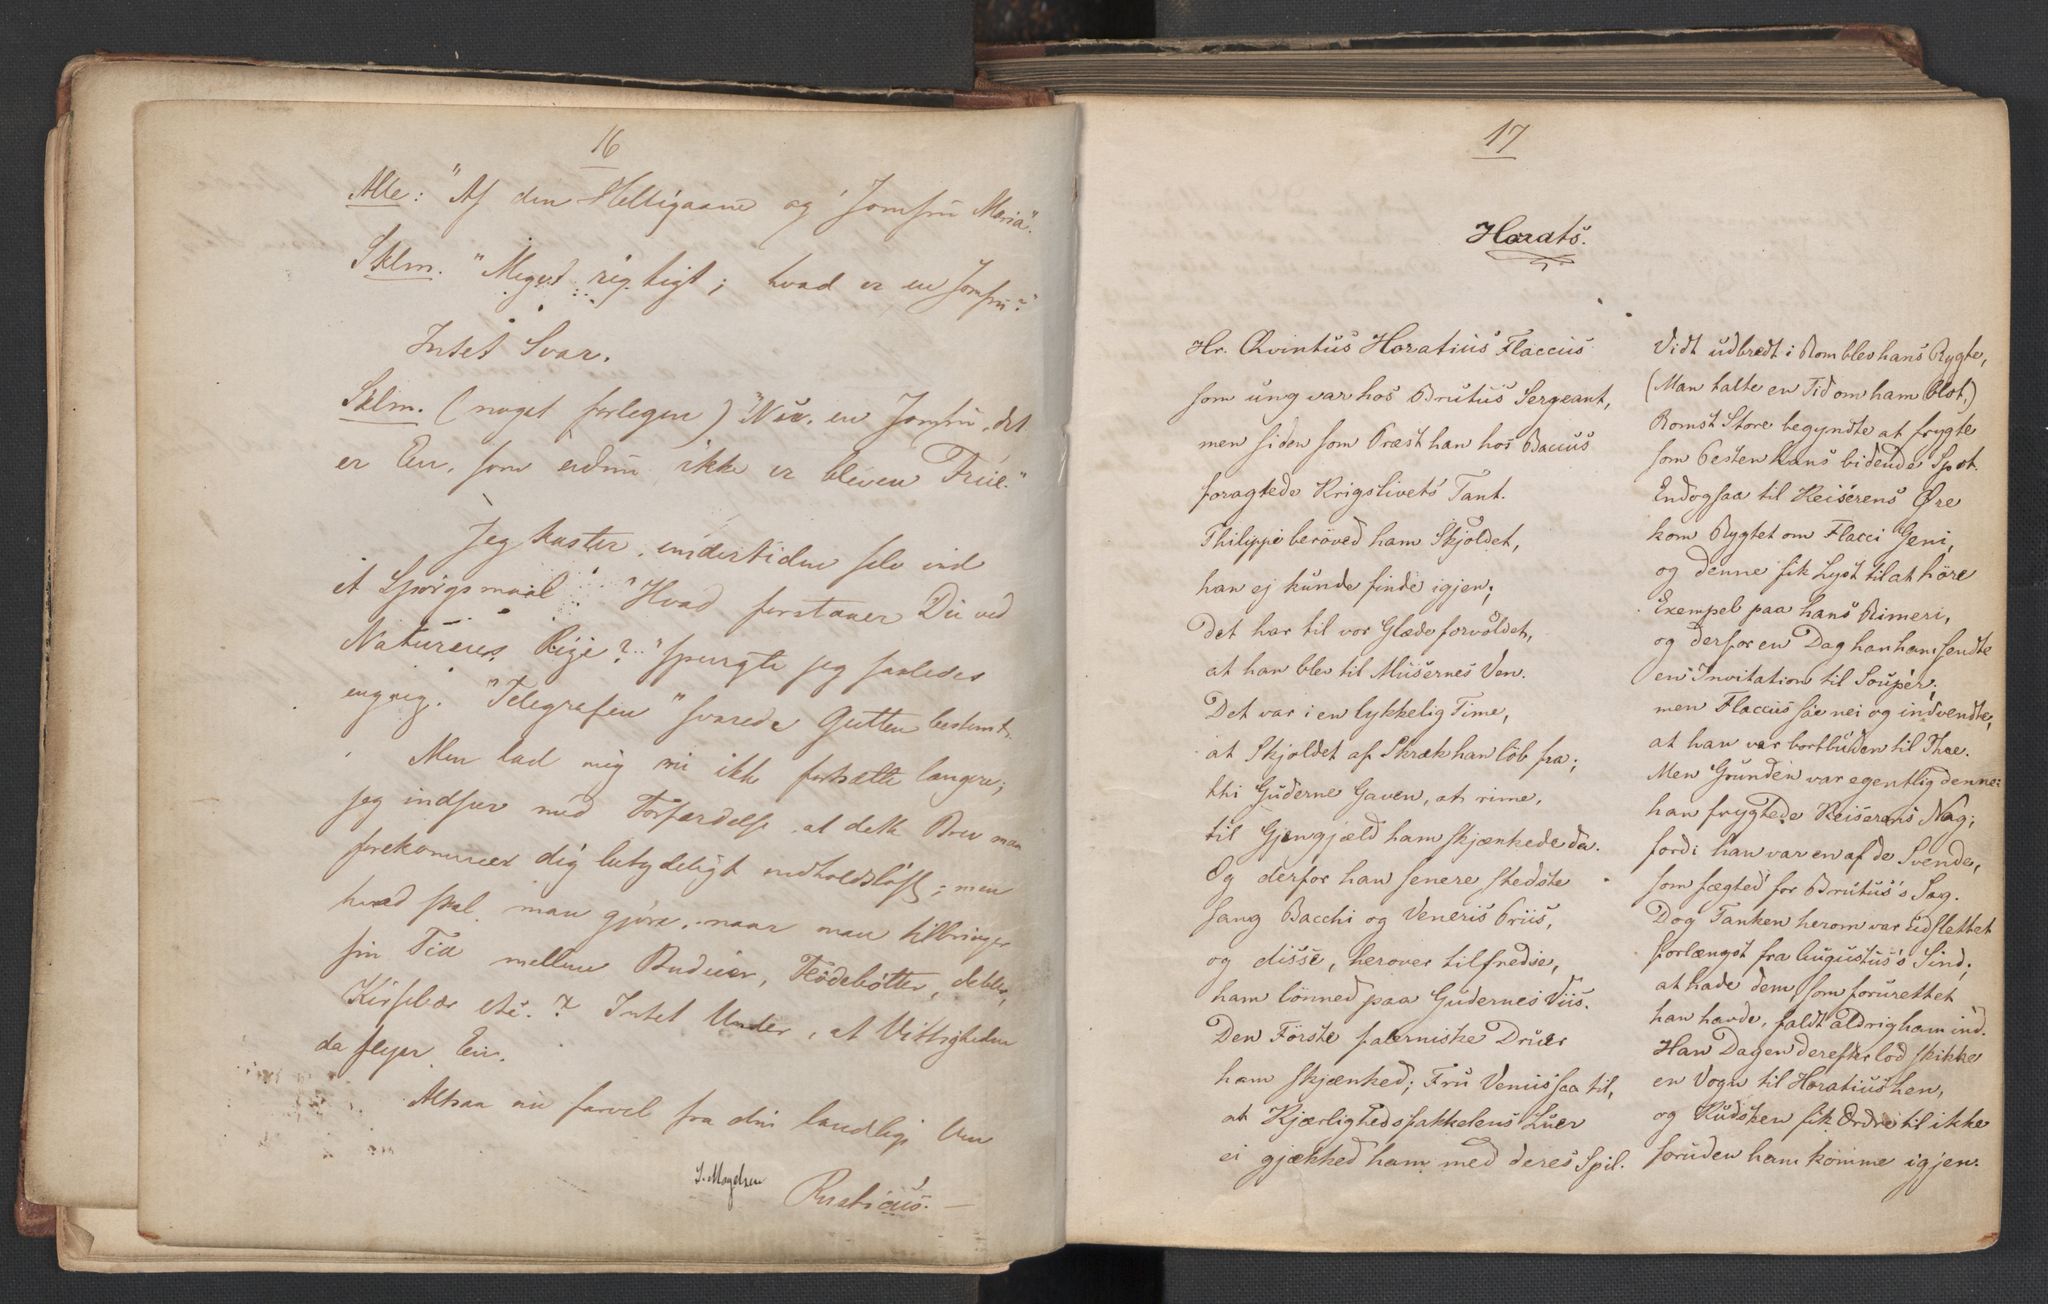 16
Alle: "Af den Helligaand og Jomfru Maria".
Sklm. "Meget rigtigt; hvad er en Jomfru?"
Intet Svar.
Sklm. (noget forlegen) "Nu, en Jomfru, det
er En, som endnu ikke er bleven Frue."
Jeg kaster undertiden selv ind
et Spørgsmaal. "Hvad forstaaer Du ved
Naturens Rige?" spurgte jeg saaledes
engang. "Telegrafen" svarede Gutten bestemt.
Men lad mig nu ikke fortsætte længere;
jeg indseer med Forfærdelse, at dette Brev maa
forekommer dig betydeligt indholdsløst; men
hvad skal man gjøre, naar man tilbringer
sin Tid mellem Budeier, Flödebötter,
Kirsebær etc.? Intet Under, at Vittigheden
da flyer En.
Altsaa nu farvel fra din landlige Ven
Rusticus.
S. Magelsen
17
Horats.
Hr. Qvintus Horatius Flaccus
som ung var hos Brutus Sergeant,
men siden som Præst han hos Baccus
foragtede Krigslivets Tant.
Philippi beröved ham Skjoldet,
han ej kunde finde igjen;
Det har til vor Glæde forvoldet,
at han blev til Musernes Ven.
Det var i en lykkelig Time,
at Skjoldet af Skræk han löb fra;
thi Guderne Gaven, at rime,
til Gjengjæld ham skjænkede da.
Og derfor han senere stedste
sang Bacchi og Veneris Priis,
og disse, herover tilfredse,
ham lönned paa Gudernes Viis.
Den Förste falerniske Druer
ham skjænked; Fru Venus saa til,
at Kjærlighedsfakkelens Luer
ei gjækked ham med deres Spil.
Vidt udbredt i Rom blev hans Rygte,
(Man talte en Tid om ham blot,)
Roms Store begyndte at frygte
som Pesten hans bidende Spot.
Endogsaa til Keiserens Øre
kom Rygtet om Flacci Geni,
og denne fik Lyst til at höre
Exempel paa hans Rimeri,
og derfor en Dag han ham sendte
en Invitation til Souper;
men Flaccus sae nei og indvendte,
at han var bortbuden til Thee.
Men Grunden var egentlig denne:
han frygtede Keiserens Nag;
fordi han var en af de Svende,
som fægted for Brutus's Sag.
Dog Tanken herom var udslettet
forlængst fra Augustus's Sind;
at hade dem, som forurettet
han havde, faldt aldrig ham ind.
Han Dagen derefter lod skikke
en Vogn til Horatius hen,
og Kudsken fik Ordre til ikke
foruden ham komme igjen.